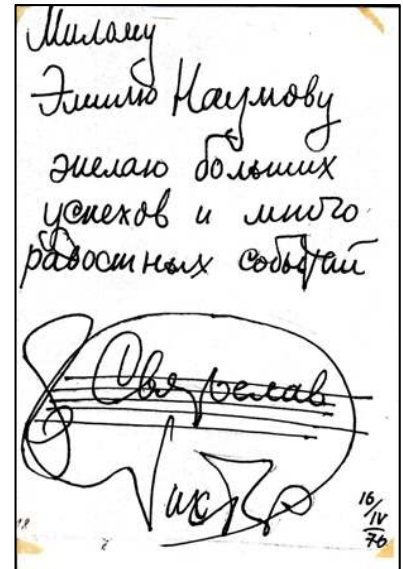 Милому
Эмилю Наумову
желаю больших
успехов и много
радостных событий
Святослав
Рихтер
16/IV
76